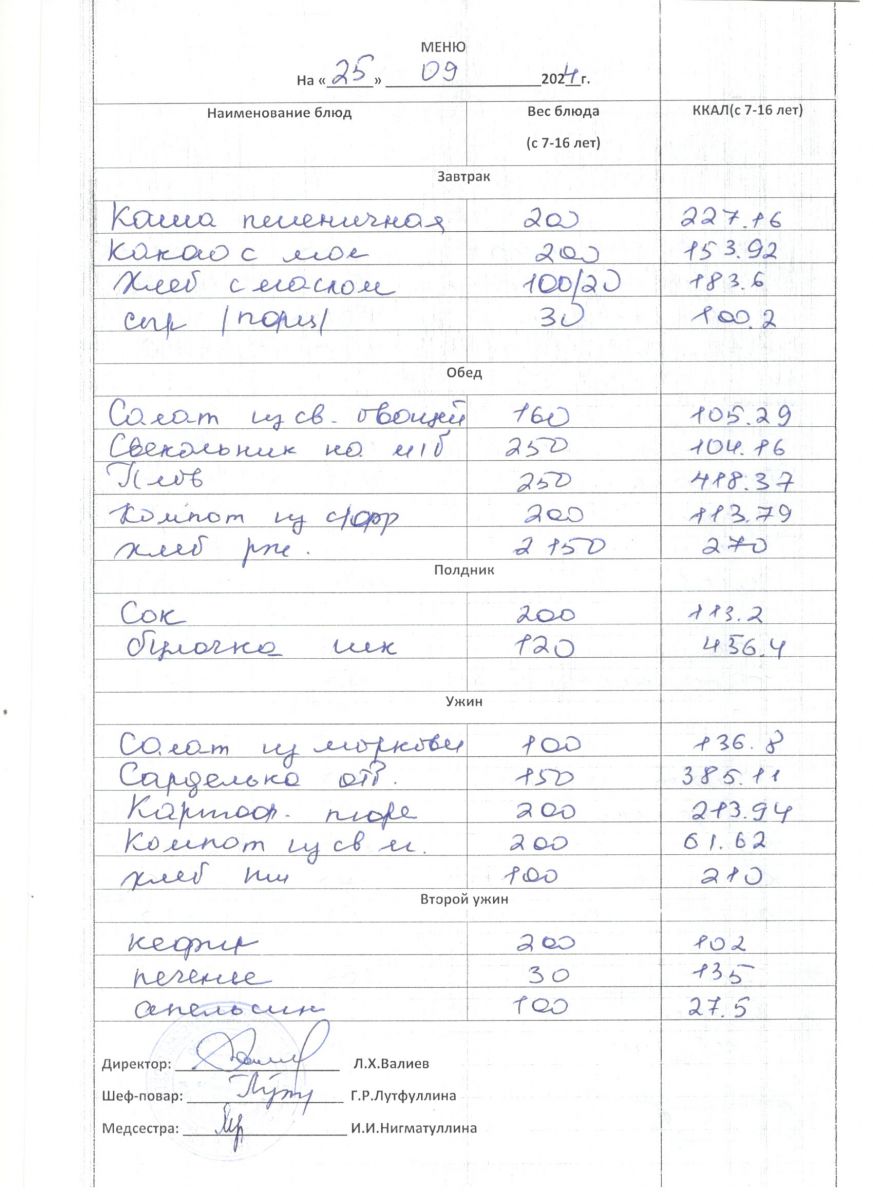 МЕНЮ
На «25» 09 2024 г.
Наименование блюд Вес блюда (с 7-16 лет) ККАЛ(с 7-16 лет)
Завтрак
Каша пшеничная 200 227.16
Какао с мол 200 153.92
Хлеб с маслом 100/20 183.6
сыр /порц/ 30 100.2
Обед
Салат из св. овощей 160 105.29
Свекольник на м/б 250 104.16
Плов 250 418.37
Компот из с/фр 200 113.79
хлеб рж. 2 150 270
Полдник
Сок 200 113.2
булочка 120 456.4
Ужин
Салат из моркови 100 136.8
Сарделька отв. 150 385.11
Картоф. пюре 200 213.94
Компот из св м. 200 61.62
хлеб пш 100 210
Второй ужин
кефир 200 102
печение 30 135
апельсин 100 27.5
Директор: Л.Х.Валиев
Шеф-повар: Г.Р.Лутфуллина
Медсестра: И.И.Нигматуллина